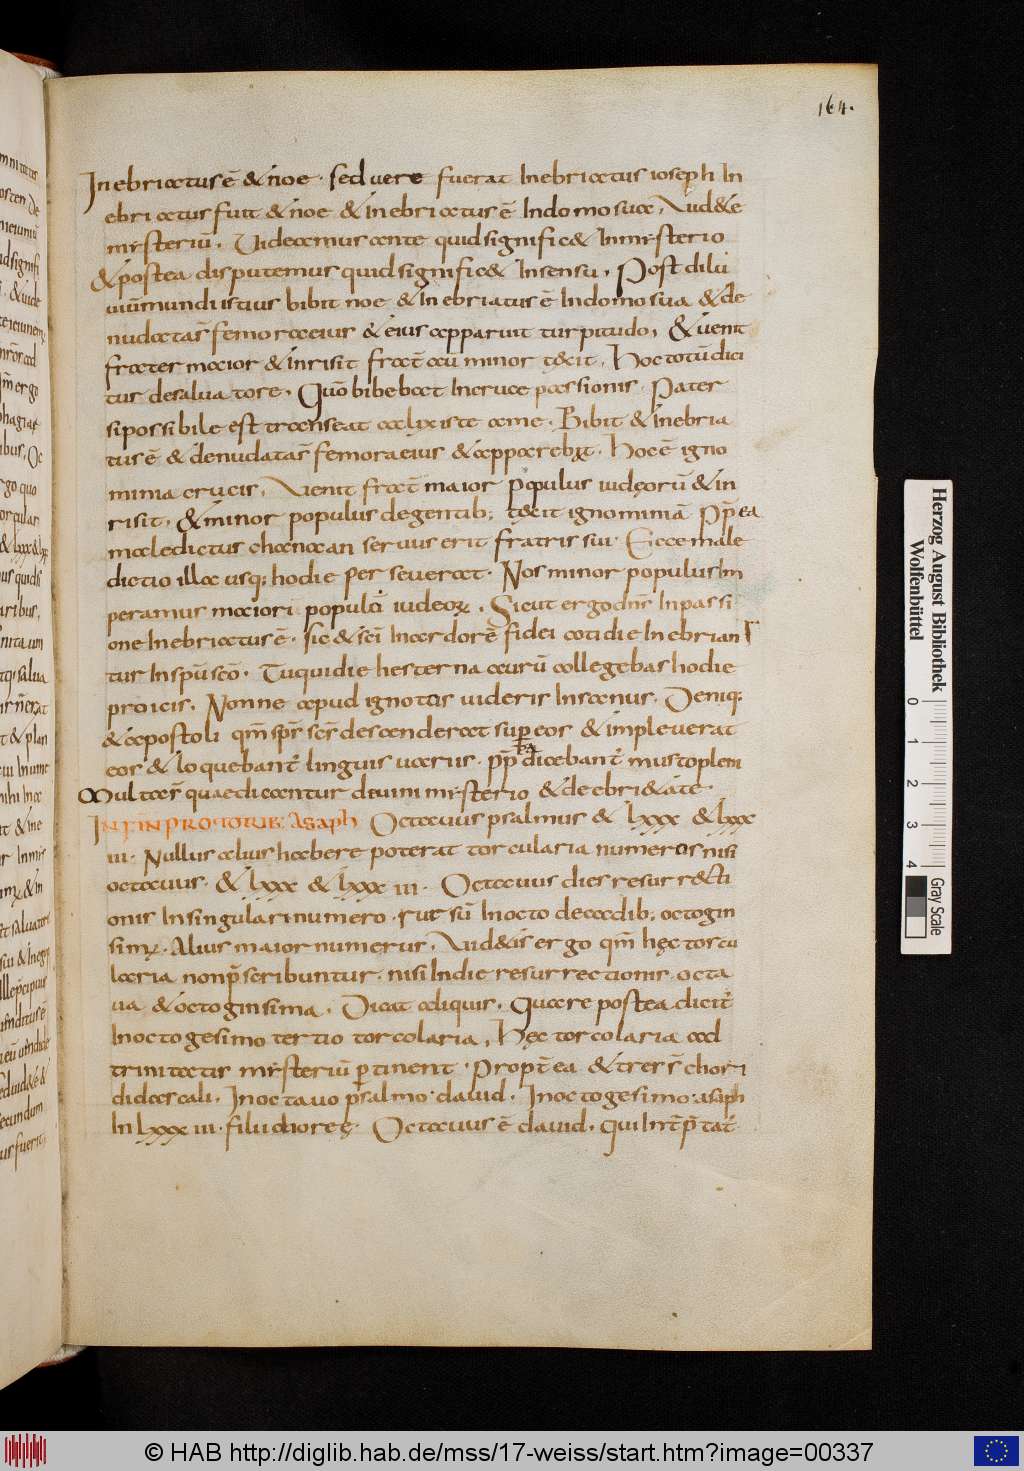 164.
Inebriatus ē & noe · sed vere fuerat Inebriatus ioseph In
ebriatus fuit & noe & inebriatus ē In domo sua, Uid&e
mysteriū. Uideamus ante quid signific& In mysterio
& postea disputemus quid signific& In sensu. Post dilu
uiū mundus tius bibit noe & Inebriatus ē In domo sua & de
nudatas̄ femora eius & eius apparuit turpitudo, & uenit
frater maior & inrisit frat̄ aū minor t&it. Hoc totū dici
tur de saluatore. Qūo bibebat In cruce passionis. Pater
si possibile est transeat calix iste a me. Bibit & inebria
tus ē & denudatas̄ femora eius & apparebat. Hoc ē igno
minia crucis. Uenit frat̄ maior populus iudęorū & in
risit, & minor populus de gentib; tęcit ignominiā ꝓp̄ ea
maledictus chanaan seruus erit fratris sui. Ecce male
dictio illa usq; hodie perseuerat. Nos minor populus Im
peramur maiori populo iudeoꝝ. Sicut ergo dn̄r In passi
one Inebriatus ē. sic & sc̄i In ardorē fidei cotidie Inebrian
tur In spū sc̄o. Tu qui die hesterna aurū collegebas hodie
proicis. Nonne apud ignotos uideris Insanus. Deniq;
& apostoli qm̄ spr̄ sc̄r̄ descenderat super eor & impleuerat
eor & loquebant̄ linguis uariis. ꝓp̄ ea dicebant̄ musto pleni
Multas̄ quae dicantur diuini mysterio & de ebri&ate.
IN FIN PRO TORIB; Asaph Octauus psalmus & lxxx & lxxx
iii. Nullus alius habere poterat torcularia numeros nisi
octauus. & lxxx & lxxx iii. Octauus dies resurr&cti
onis In singulari numero. rur sū In octo decadib; octogin
simꝝ. Alius maior numerus. Uid&is ergo qm̄ hęc torcu
laria non p̄scribuntur. nisi In die resurrectionis. octa
ua & octoginsima. Dicat aliquis. Quare postea dicit̄
In octogesimo tertio torcolaria, Hęc torcolaria ad
trinitatis mysteriū pertinent. Propt̄ ea & tres s̄ chori
didascali. In octauo psalmo. dauid. In octogesimo. asaph
In lxxx iii. filii chore. Octauus ē dauid. qui Int̄p̄tat̄
Herzog August Bibliothek
Wolfenbüttel
0 1 2 3 4
Gray Scale
© HAB http://diglib.hab.de/mss/17-weiss/start.htm?image=00337